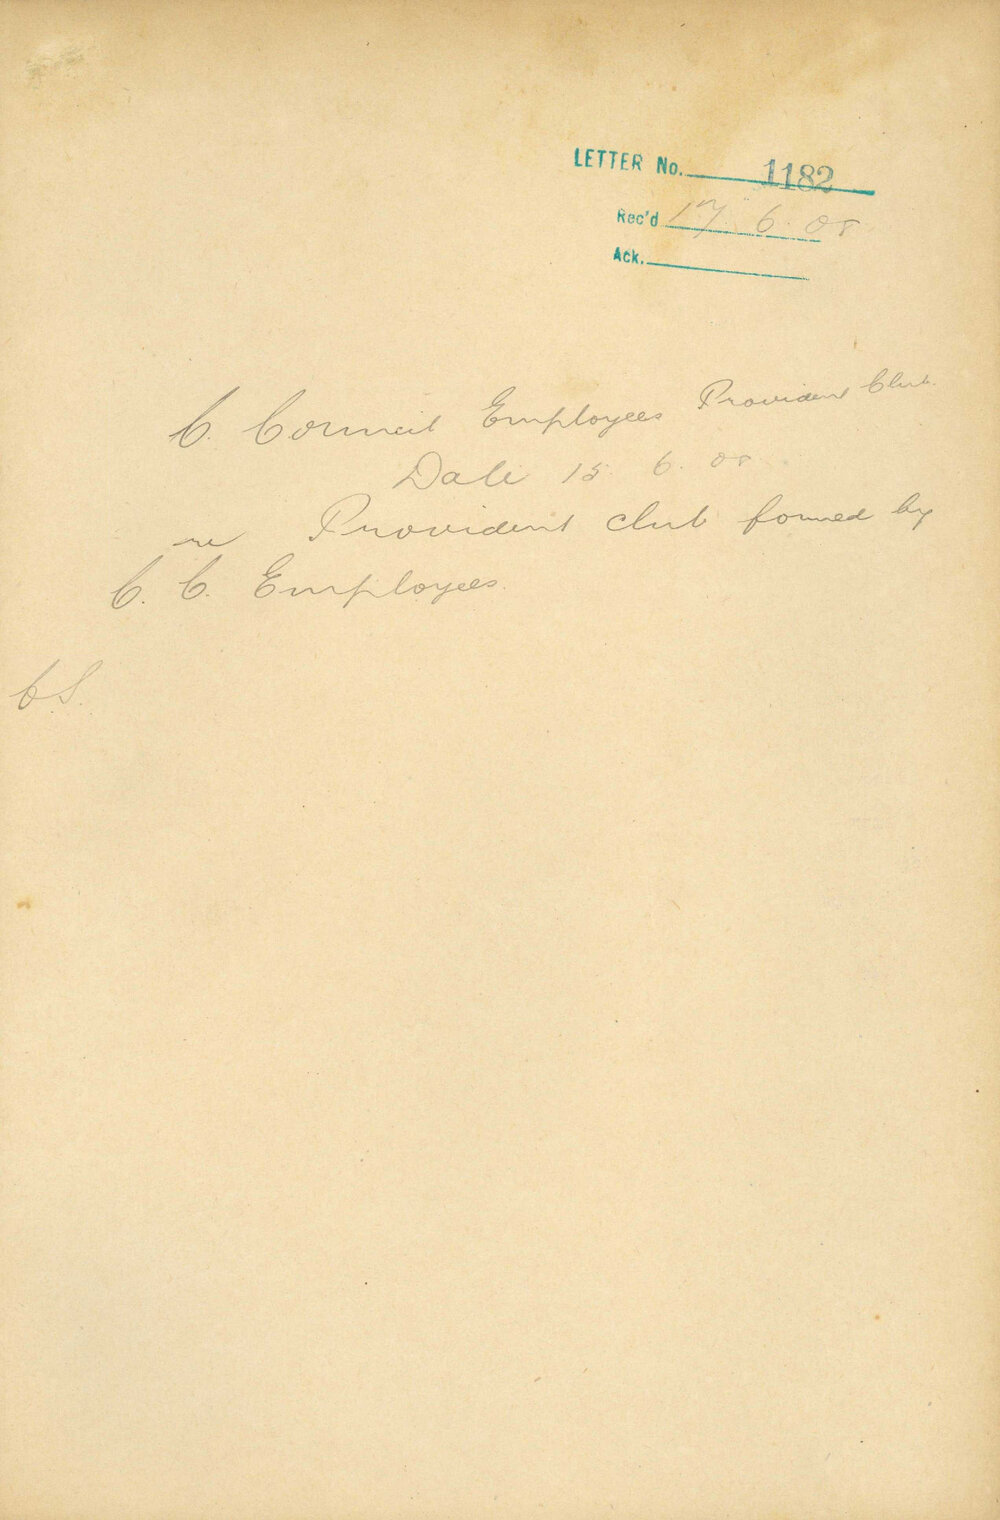 LETTER No. 1182
Rec'd 17. 6. 08
Ack.
C. Council Employees Provident Club.
Date 15. 6. 08
re Provident club formed by
C. C. Employees.
CS.